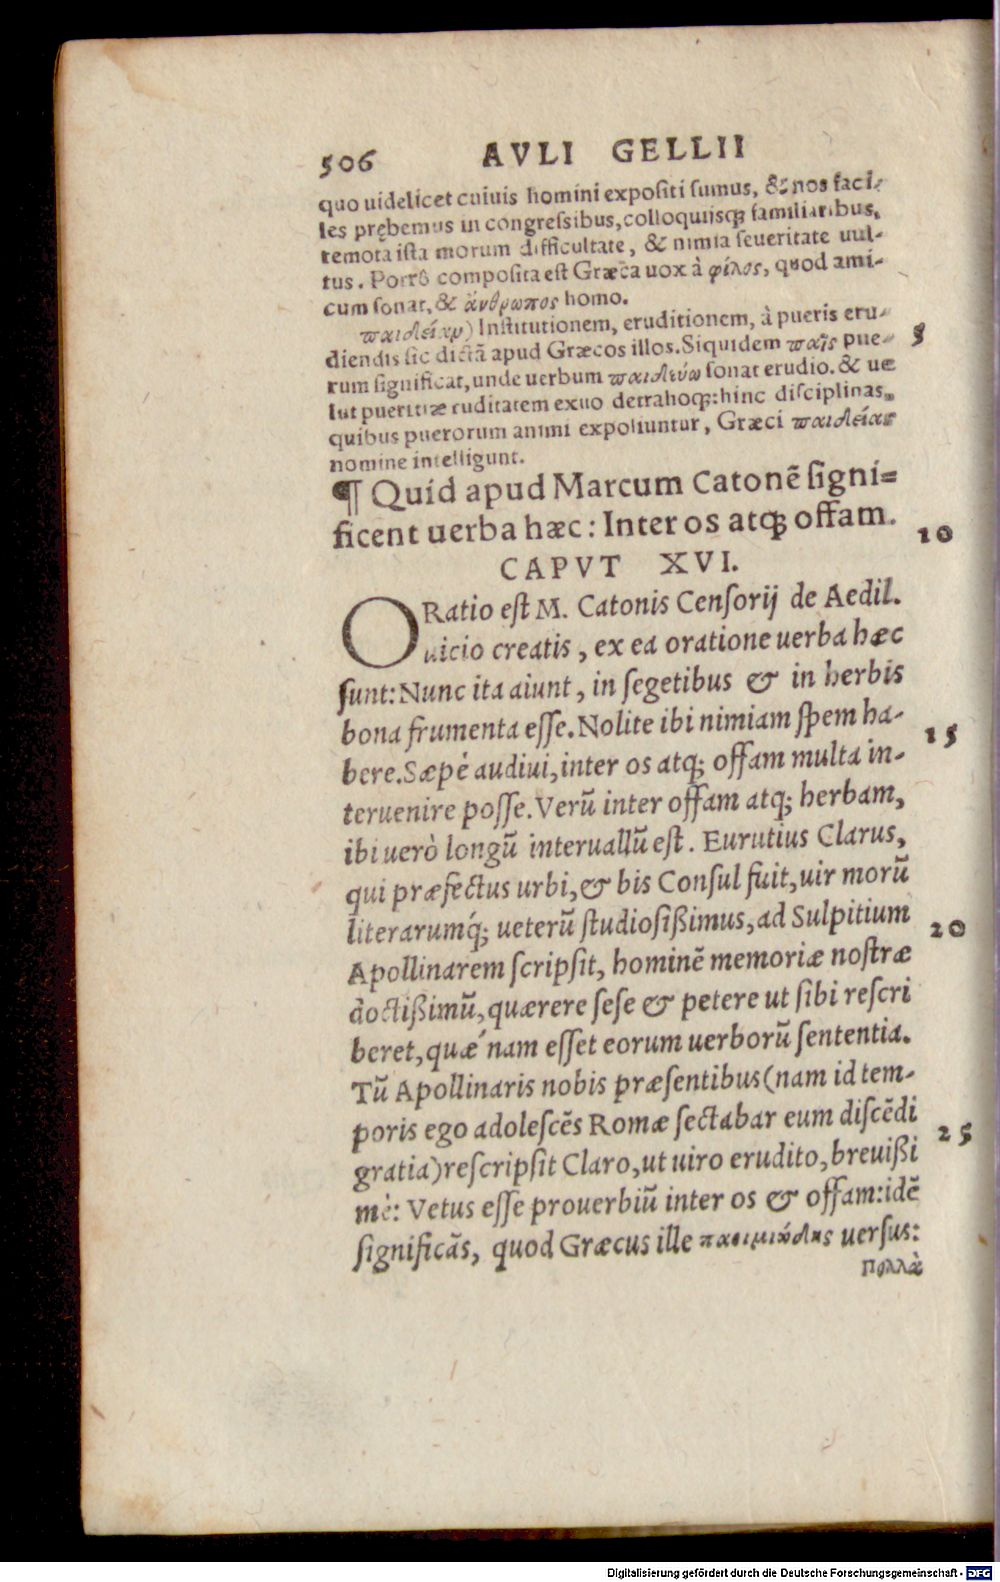 506 AVLI GELLII
quo uidelicet cuiuis homini expositi sumus, & nos faci-
les prębemus in congressibus, colloquiisq; familiaribus,
remota ista morum difficultate, & nimia seueritate uul-
tus. Porrò composita est Græca uox à φίλος, quod ami-
cum sonat, & ἄνθρωπος homo.
παιδείαν) Institutionem, eruditionem, à pueris eru-
5
diendis sic dictã apud Græcos illos. Siquidem παῖς pue-
rum significat, unde uerbum παιδεύω sonat erudio. & ue
lut pueritiæ ruditatem exuo detrahoq;: hinc disciplinas,
quibus puerorum animi expoliuntur, Græci παιδείας
nomine intelligunt.
¶ Quid apud Marcum Catonẽ signi=
ficent uerba hæc: Inter os atq; offam.
10
CAPVT XVI.
ORatio est M. Catonis Censorij de Aedil.
uicio creatis, ex ea oratione uerba hæc
sunt: Nunc ita aiunt, in segetibus & in herbis
bona frumenta esse. Nolite ibi nimiam spem ha-
15
bere. Sæpè audiui, inter os atq; offam multa in-
teruenire posse. Verũ inter offam atq; herbam,
ibi uerò longũ interuallũ est. Eurutius Clarus,
qui præfectus urbi, & bis Consul fuit, uir morũ
literarumq́; ueterũ studiosißimus, ad Sulpitium
20
Apollinarem scripsit, hominẽ memoriæ nostræ
doctißimũ, quærere sese & petere ut sibi rescri
beret, quæ´nam esset eorum uerborũ sententia.
Tũ Apollinaris nobis præsentibus (nam id tem-
poris ego adolescẽs Romæ sectabar eum discẽdi
25
gratia) rescripsit Claro, ut uiro erudito, breuißi
mè: Vetus esse prouerbiũ inter os & offam: idẽ
significãs, quod Græcus ille παροιμιώδης uersus:
Πολλὰ
Digitalisierung gefördert durch die Deutsche Forschungsgemeinschaft - DFG